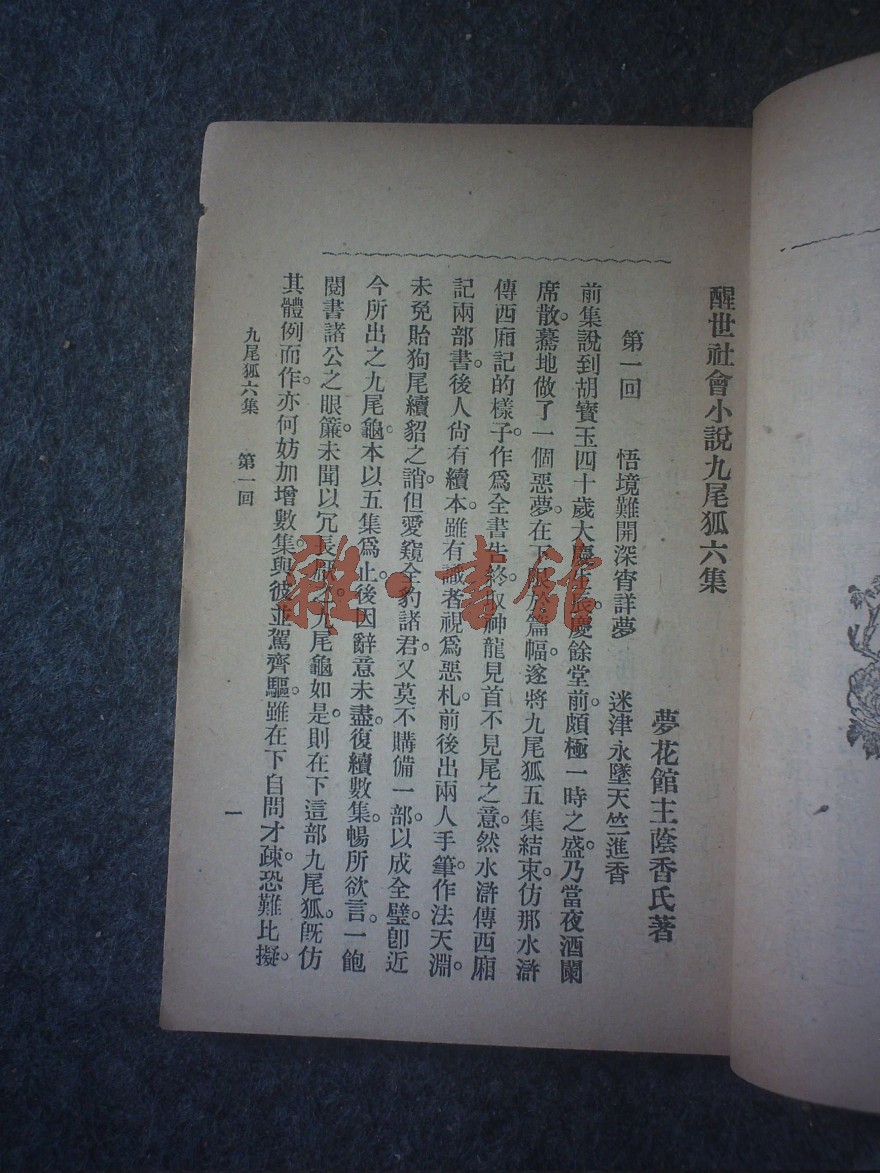 醒世社會小說九尾狐六集
夢花館主蔭香氏著
第一回　悟境難開深宵詳夢　迷津永墜天竺進香
前集說到胡寶玉四十歲大慶在長慶餘堂前。頗極一時之盛。乃當夜酒闌
席散。驀地做了一個惡夢。在下限於篇幅。遂將九尾狐五集結束。仿那水滸
傳西廂記的樣子。作爲全書告終。取神龍見首不見尾之意。然水滸傳西廂
記兩部書。後人尙有續本。雖有識者視爲惡札。前後出兩人手筆。作法天淵。
未免貽狗尾續貂之誚。但愛窺全豹諸君。又莫不購備一部。以成全璧。卽近
今所出之九尾龜。本以五集爲止。後因辭意未盡。復續數集。暢所欲言。一飽
閱書諸公之眼簾。未聞以冗長厭之。九尾龜如是。則在下這部九尾狐。旣仿
其體例而作。亦何妨加增數集。與彼並駕齊驅。雖在下自問才疎。恐難比擬。
九尾狐六集　第一回
一
雜·書館